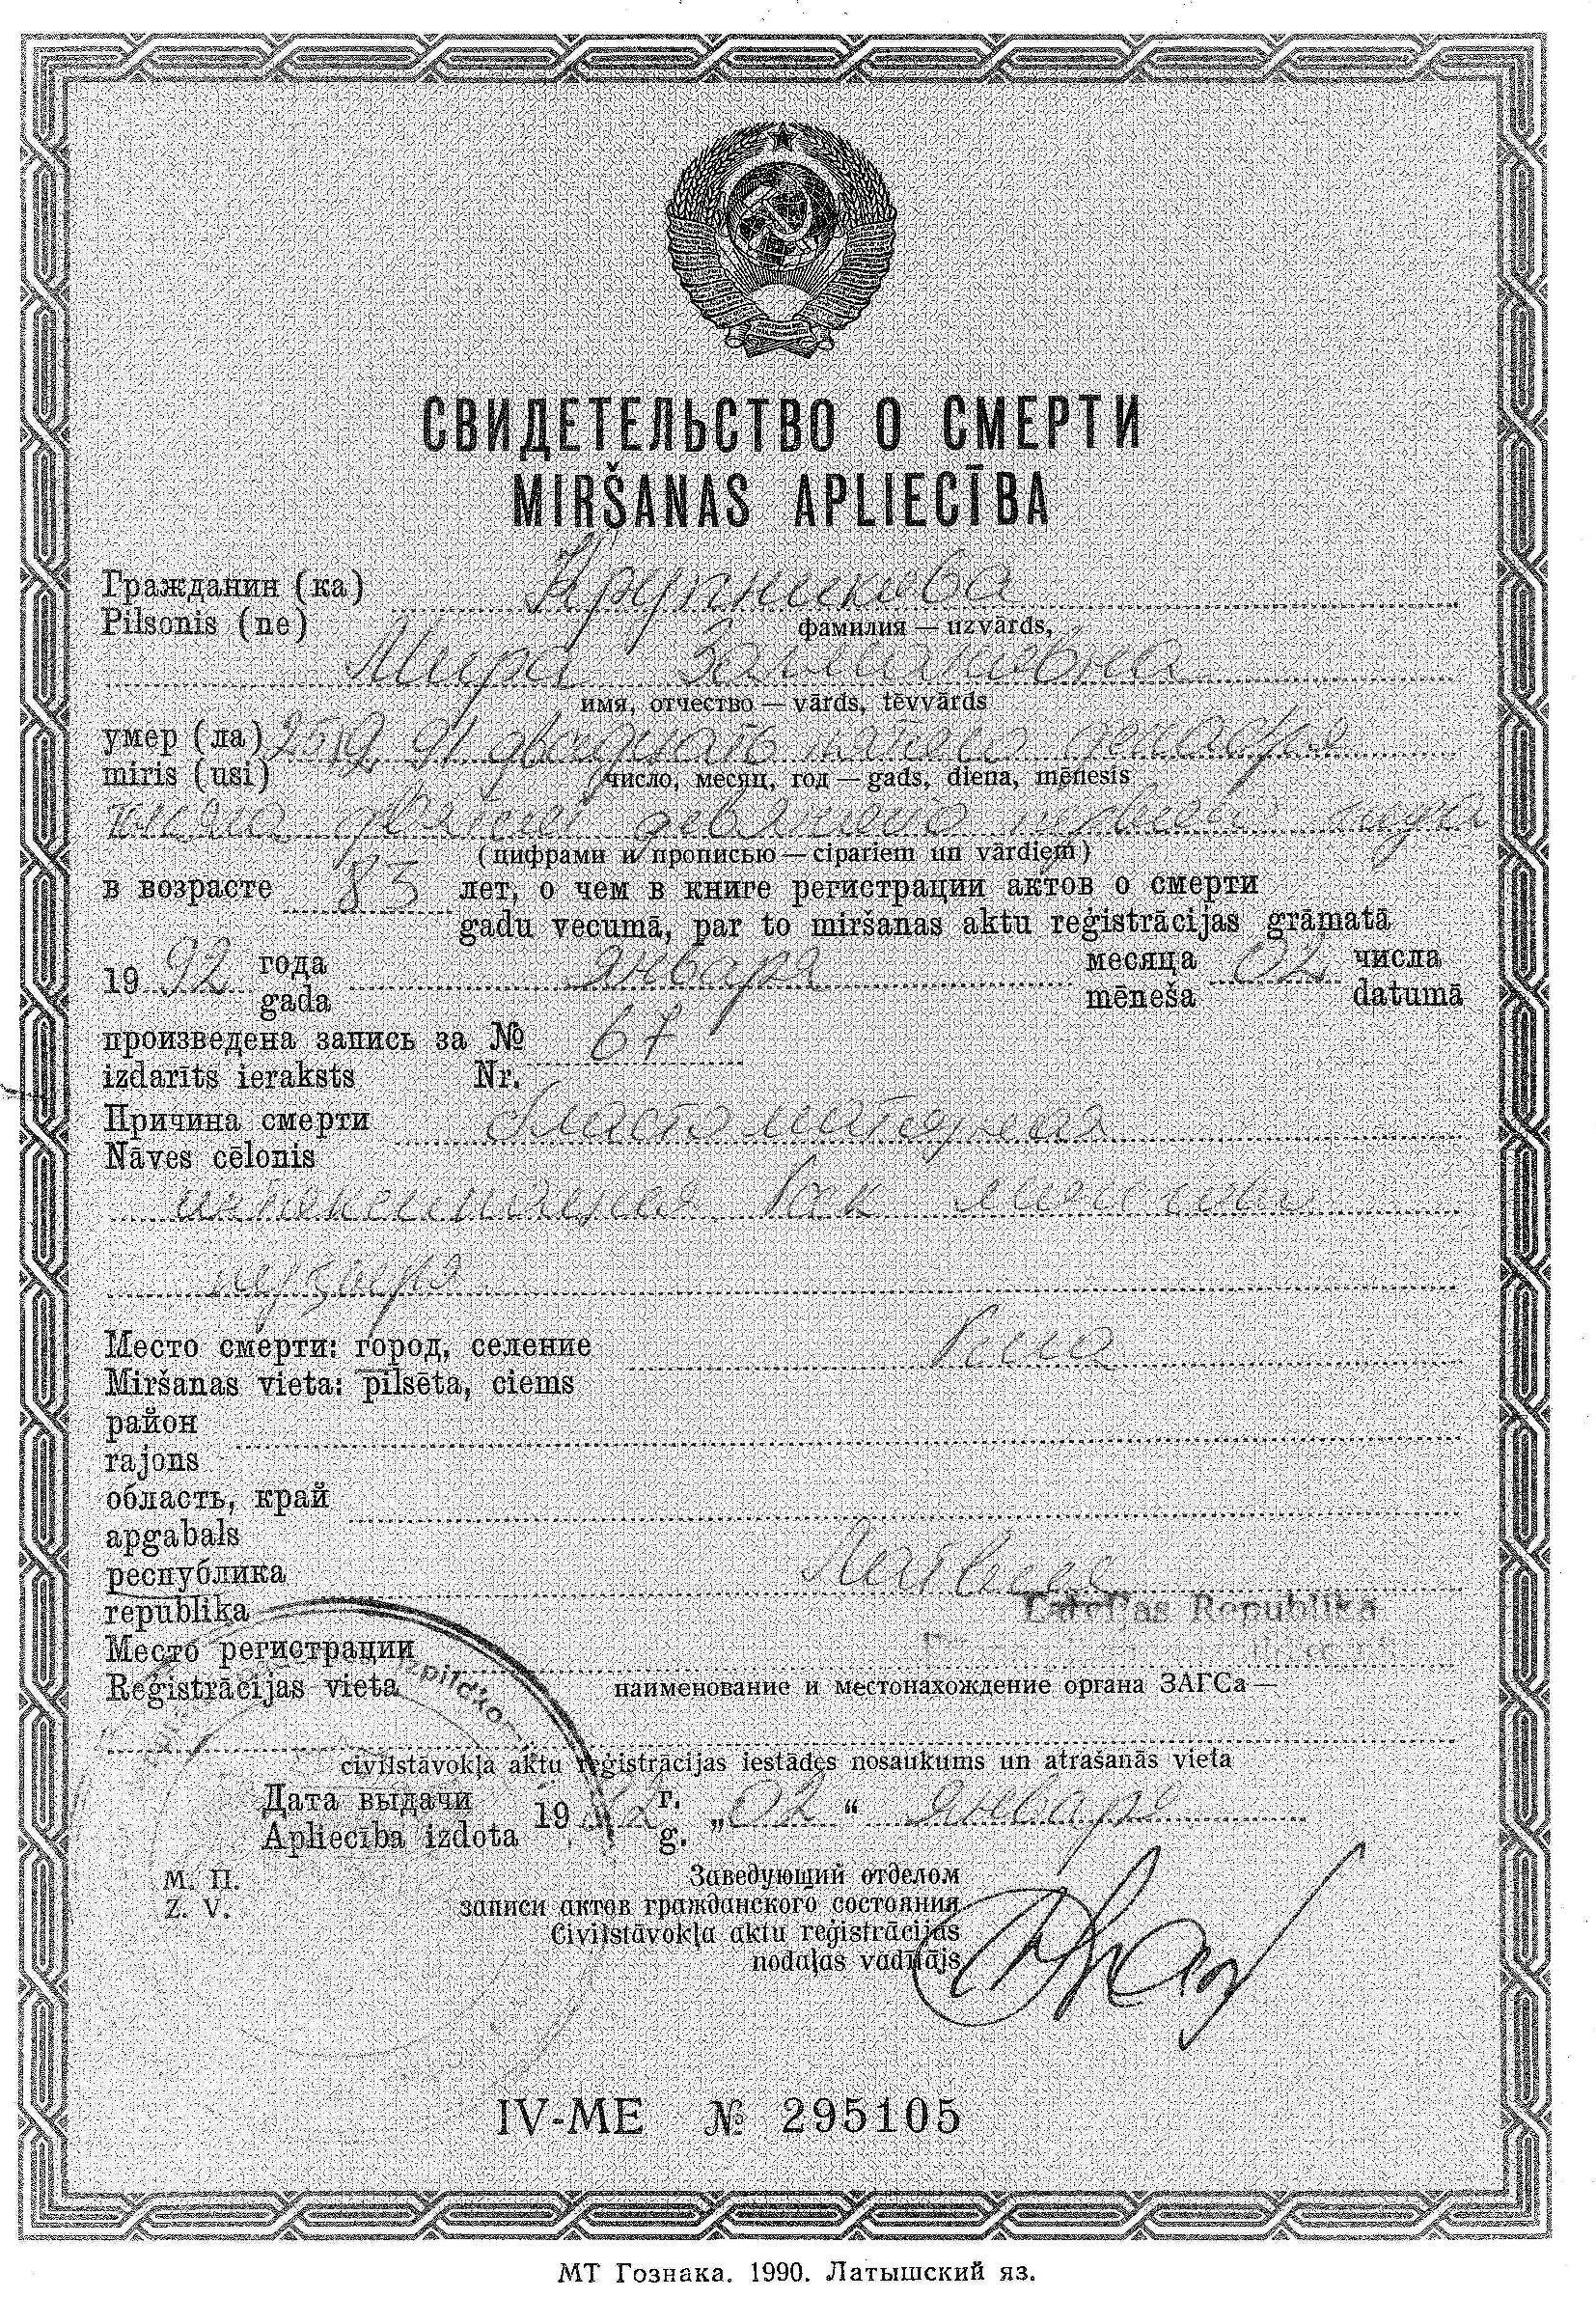 СВИДЕТЕЛЬСТВО О СМЕРТИ
MIRŠANAS APLIECĪBA
Гражданин (ка) Крупникова
Pilsonis (ne)
фамилия — uzvārds,
Мира Залмановна
имя, отчество — vārds, tēvvārds
умер (ла) 25 12 91 двадцать пятого декабря
miris (usi)
число, месяц, год — gads, diena, mēnesis
тысяча девятьсот девяносто первого года
(цифрами и прописью — cipariem un vārdiem)
в возрасте 85 лет, о чем в книге регистрации актов о смерти
gadu vecumā, par to miršanas aktu reģistrācijas grāmatā
19 92 года января месяца 02 числа
gada mēneša datumā
произведена запись за № 67
izdarīts ieraksts Nr.
Причина смерти бластоматозная
Nāves cēlonis
интоксикация. Рак мочевого
пузыря
Место смерти: город, селение Рига
Miršanas vieta: pilsēta, ciems
район
rajons
область, край
apgabals
республика Латвия
republika
Latvijas Republika
Место регистрации
Reģistrācijas vieta
наименование и местонахождение органа ЗАГСа —
civilstāvokļa aktu reģistrācijas iestādes nosaukums un atrašanās vieta
Дата выдачи 1992 г. „02“ января
Apliecība izdota g.
М. П.
Z. V.
Заведующий отделом
записи актов гражданского состояния
Civilstāvokļa aktu reģistrācijas
nodaļas vadītājs
IV-ME № 295105
МТ Гознака. 1990. Латышский яз.